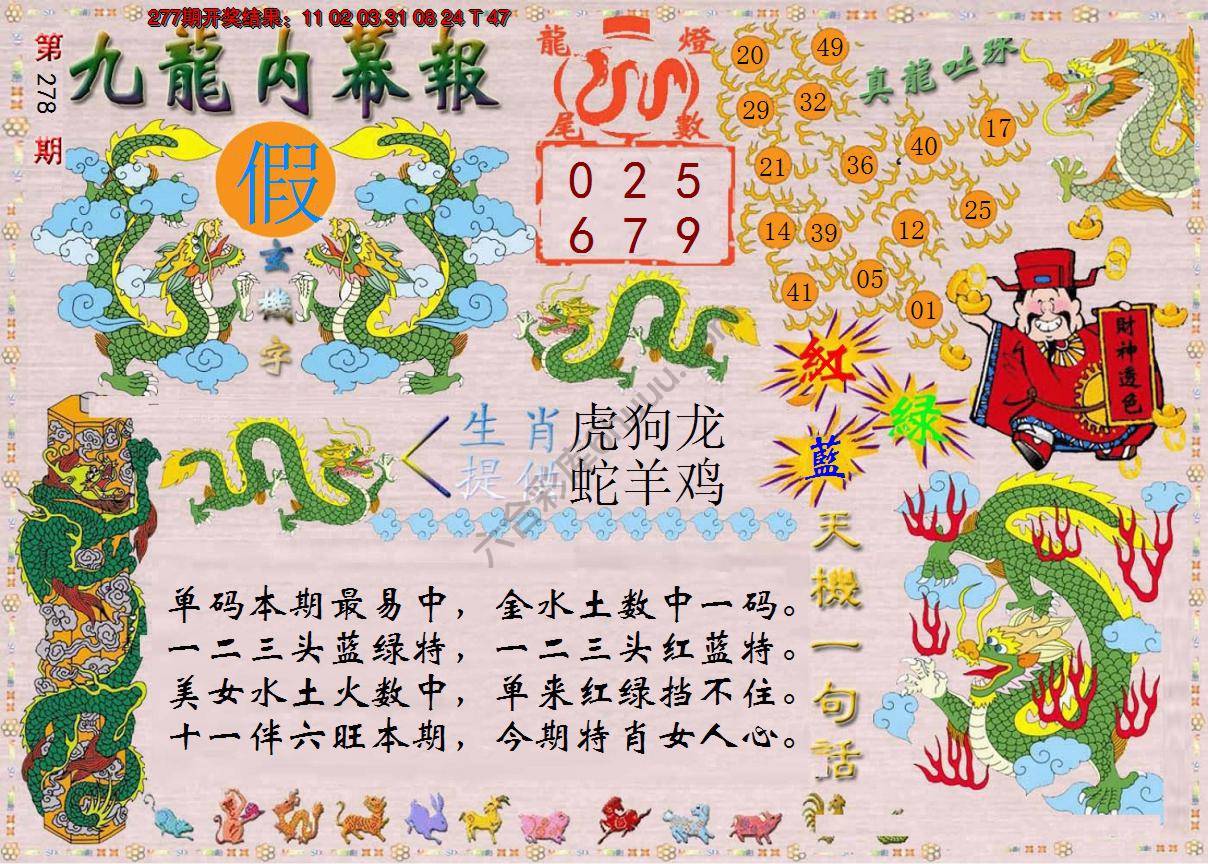 277期开奖结果：11 02 03 31 08 24 T 47
第278期
九龍内幕報
假
玄機字
龍燈
尾數
0 2 5
6 7 9
真龍吐珠
20 49
29 32
21 36 40 17
14 39 12 25
41 05 01
財神透色
紅
綠
藍
生肖 虎狗龙
提供 蛇羊鸡
天機一句話
单码本期最易中，金水土数中一码。
一二三头蓝绿特，一二三头红蓝特。
美女水土火数中，单来红绿挡不住。
十一伴六旺本期，今期特肖女人心。